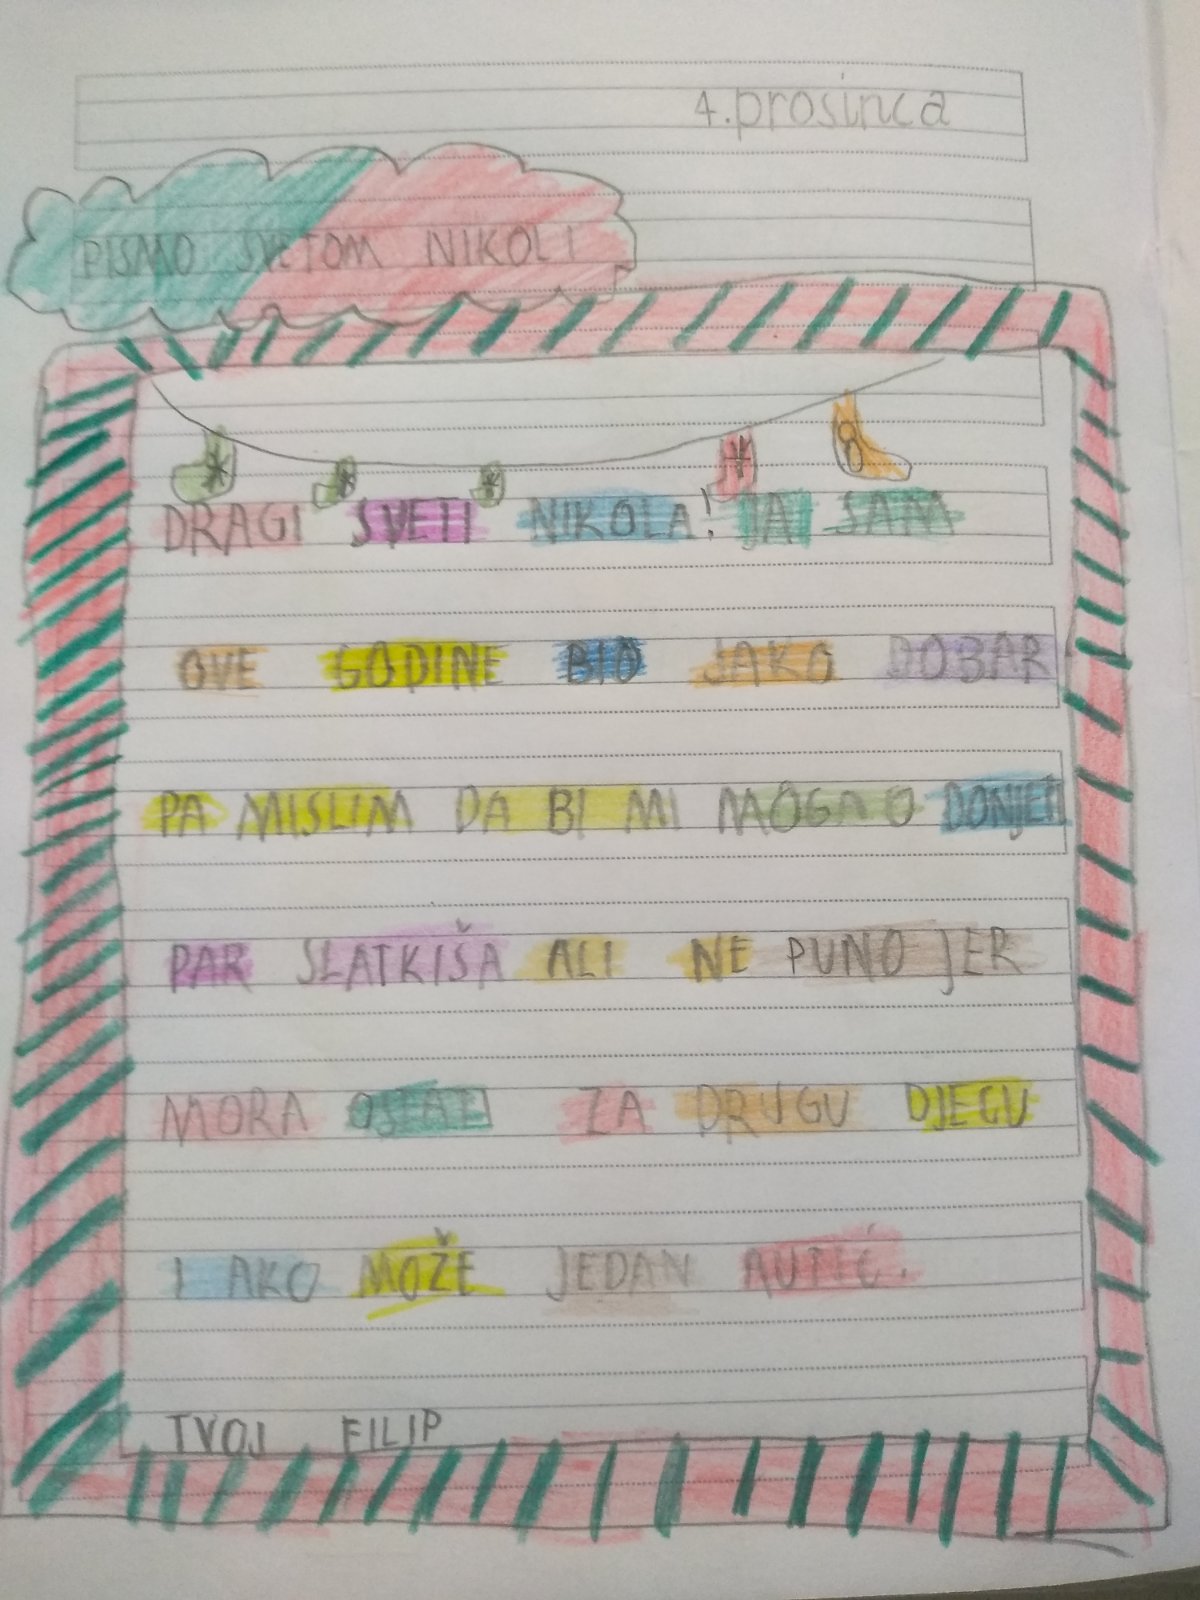 4. prosinca
PISMO SVETOM NIKOLI
DRAGI SVETI NIKOLA! JA SAM
OVE GODINE BIO JAKO DOBAR
PA MISLIM DA BI MI MOGAO DONJETI
PAR SLATKIŠA ALI NE PUNO JER
MORA OSTATI ZA DRUGU DJECU
I AKO MOŽE JEDAN AUTIĆ.
TVOJ FILIP